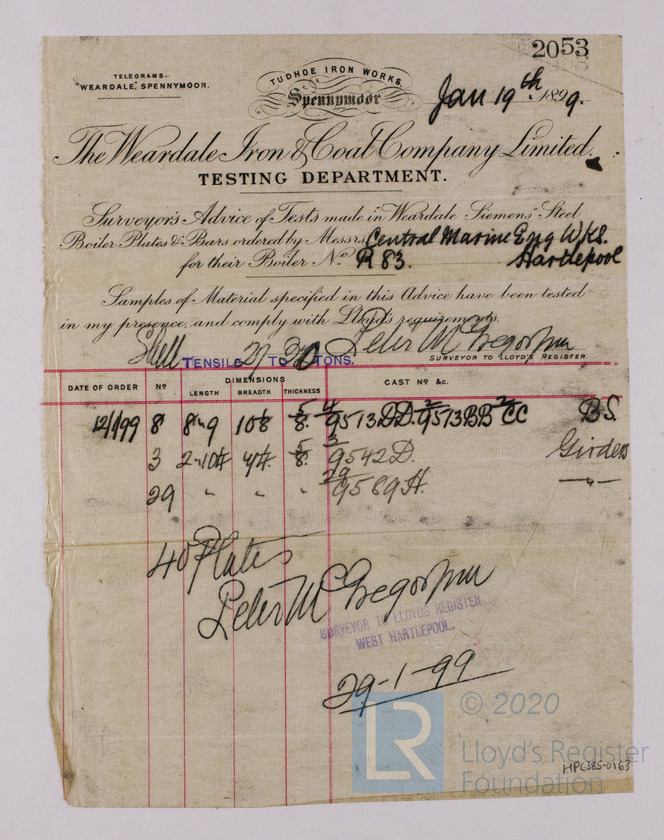 2053
TELEGRAMS:-
"WEARDALE," SPENNYMOOR.
TUDHOE IRON WORKS,
Spennymoor
Jan 19th 1899.
The Weardale Iron & Coal Company Limited.
TESTING DEPARTMENT.
Surveyor's Advice of Tests made in "Weardale Siemens" Steel
Boiler Plates & Bars ordered by Messrs Central Marine Eng Wks.
for their Boiler No R 83. Hartlepool
Samples of Material specified in this Advice have been tested
in my presence, and comply with Lloyd's requirements.
Peter McGregor Jnr
SURVEYOR TO LLOYD'S REGISTER.
Shell TENSILE 27 TO 30 TONS.
DATE OF ORDER No DIMENSIONS CAST No &c.
LENGTH BREADTH THICKNESS
12/1/99 8 8-9 5/8 4/9513DD. 2/9513BB 2/CC BS.
3 5/8 3/9542D. Girders
29 " " " 29/9589H. —"—
40 Plates
Peter McGregor Jnr
SURVEYOR TO LLOYD'S REGISTER,
WEST HARTLEPOOL.
29-1-99
LR © 2020
Lloyd's Register
Foundation
HPC385-0163